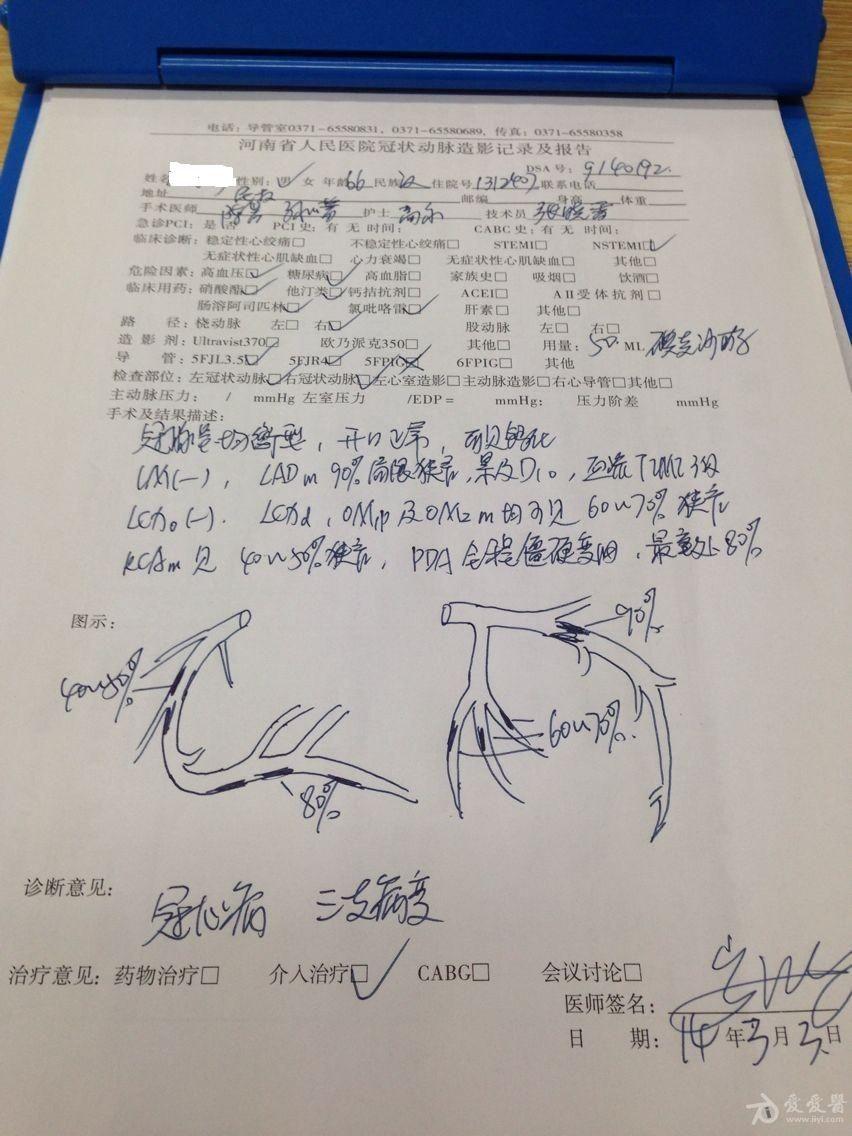 电话：导管室0371-65580831，0371-65580689，传真：0371-65580358
河南省人民医院冠状动脉造影记录及报告
DSA号：9140192
姓名 性别：男 女 年龄66 民族汉 住院号1312407联系电话
地址 邮编 身高 体重
手术医师 护士 技术员
急诊PCI：是 否 PCI史：有 无 时间： CABC史：有 无 时间：
临床诊断：稳定性心绞痛□ 不稳定性心绞痛□ STEMI□ NSTEMI□✓
无症状性心肌缺血□ 心力衰竭□ 无症状性心肌缺血□ 其他□
危险因素：高血压□✓ 糖尿病□✓ 高血脂□ 家族史□ 吸烟□ 饮酒□
临床用药：硝酸酯□✓ 他汀类□✓ 钙拮抗剂□ ACEI□ AⅡ受体抗剂□
肠溶阿司匹林□✓ 氯吡咯雷□✓ 肝素□ 其他□
路 径：桡动脉 左□ 右□✓ 股动脉 左□ 右□
造影剂：Ultravist370□ 欧乃派克350□ 其他□ 用量：50 ML 碘克沙醇
导 管：5FJL3.5□✓ 5FJR4□✓ 5FPIG□ 6FPIG□ 其他
检查部位：左冠状动脉□✓右冠状动脉□✓左心室造影□主动脉造影□右心导管□其他□
主动脉压力： / mmHg 左室压力 /EDP= mmHg： 压力阶差 mmHg
手术及结果描述：
冠脉呈均衡型，开口正常，可见钙化
LM(-)，LAD m 90%局限狭窄，累及D1o，血流TIMI 3级
LCXo(-)．LCXd，OM1p及OM2m均可见60~70%狭窄
RCAm见40~50%狭窄，PDA全程僵硬变细，最重处80%
图示：
90%
40~50%
60~70%
80%
诊断意见：
冠心病 三支病变
治疗意见：药物治疗□ 介入治疗□✓ CABG□ 会议讨论□
医师签名：
日 期：14年3月3日
爱爱医
www.iiyi.com